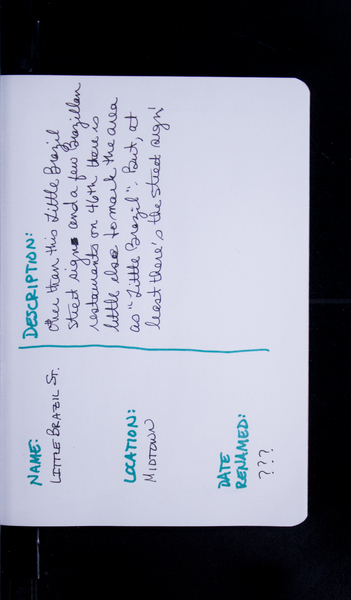 NAME:
LITTLE BRAZIL ST.
LOCATION:
MIDTOWN
DATE
RENAMED:
???
DESCRIPTION:
Other than this Little Brazil
street sign and a few Brazilian
restaurants on 46th there is
little else to mark the area
as "Little Brazil". But, at
least there's the street sign!